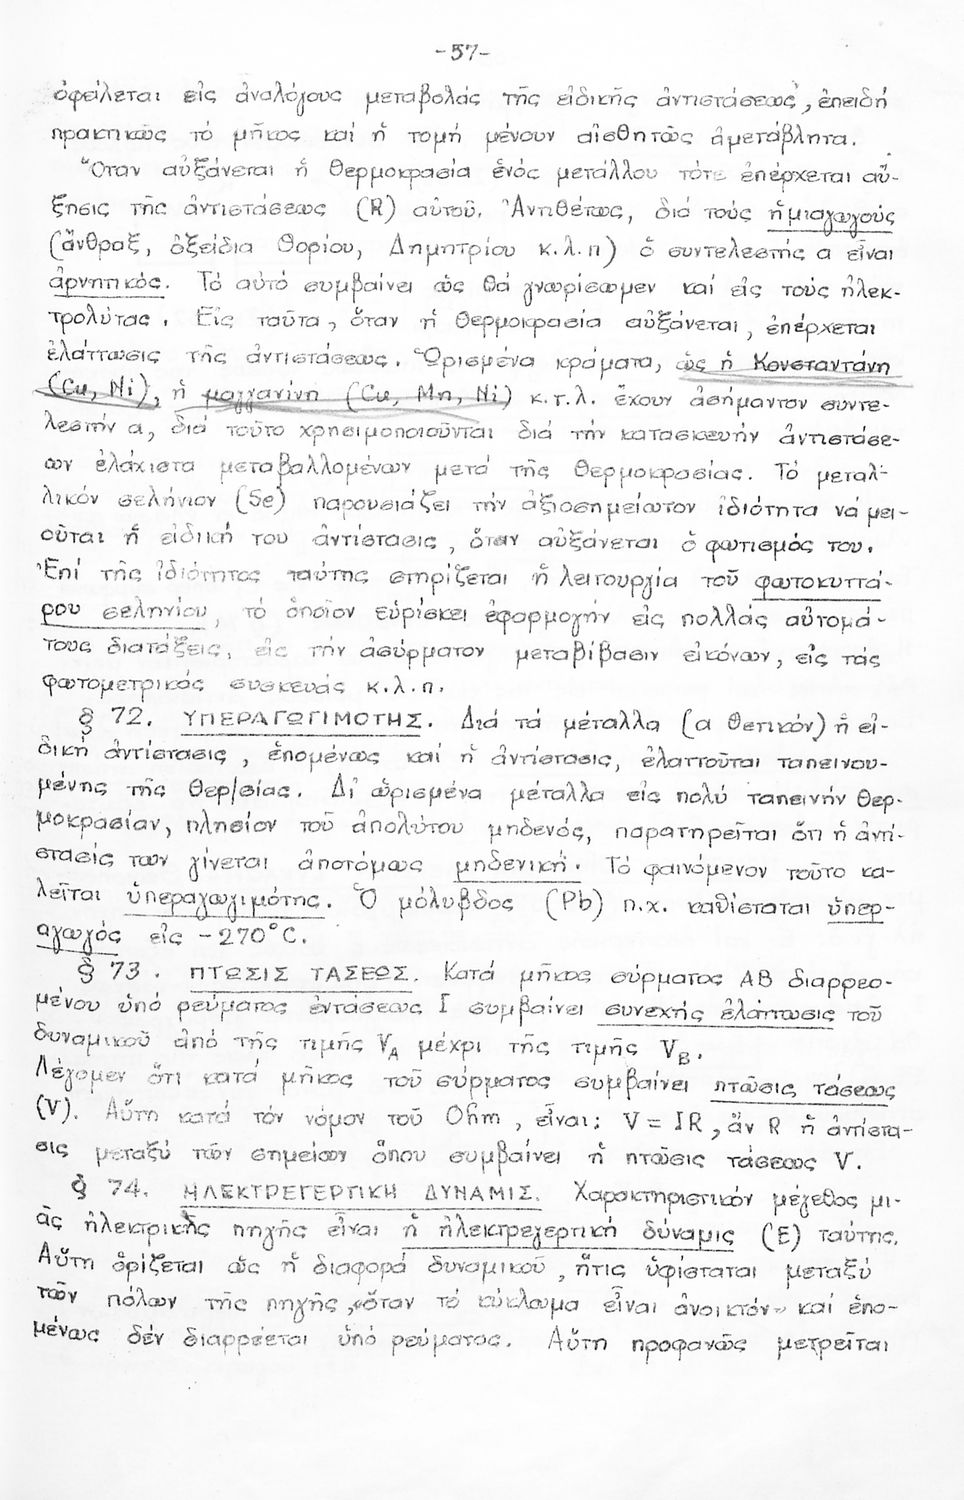 -57-
ὀφείλεται εἰς ἀναλόγους μεταβολάς τῆς εἰδικῆς ἀντιστάσεως, ἐπειδή
πρακτικῶς τό μῆκος καί ἡ τομή μένουν αἰσθητῶς ἀμετάβλητα.
Ὅταν αὐξάνεται ἡ θερμοκρασία ἑνός μετάλλου τότε ἐπέρχεται αὔ-
ξησις τῆς ἀντιστάσεως (R) αὐτοῦ. Ἀντιθέτως, διά τούς ἡμιαγωγούς
(ἄνθραξ, ὀξείδια Θορίου, Δημητρίου κ.λ.π) ὁ συντελεστής α εἶναι
ἀρνητικός. Τό αὐτό συμβαίνει ὡς θά γνωρίσωμεν καί εἰς τούς ἠλεκ-
τρολύτας. Εἰς ταῦτα, ὅταν ἡ θερμοκρασία αὐξάνεται, ἐπέρχεται
ἐλάττωσις τῆς ἀντιστάσεως. Ὡρισμένα κράματα, ὡς ἡ Κονσταντάνη
(Cu, Ni), ἡ μαγγανίνη (Cu, Mn, Ni) κ.τ.λ. ἔχουν ἀσήμαντον συντε-
λεστήν α, διά τοῦτο χρησιμοποιοῦνται διά τήν κατασκευήν ἀντιστάσε-
ων ἐλάχιστα μεταβαλλομένων μετά τῆς θερμοκρασίας. Τό μεταλ-
λικόν σελήνιον (Se) παρουσιάζει τήν ἀξιοσημείωτον ἰδιότητα νά μει-
οῦται ἡ εἰδική του ἀντίστασις, ὅταν αὐξάνεται ὁ φωτισμός του.
Ἐπί τῆς ἰδιότητος ταύτης στηρίζεται ἡ λειτουργία τοῦ φωτοκυττά-
ρου σεληνίου, τό ὁποῖον εὑρίσκει ἐφαρμογήν εἰς πολλάς αὐτομά-
τους διατάξεις, εἰς τήν ἀσύρματον μεταβίβασιν εἰκόνων, εἰς τάς
φωτομετρικάς συσκευάς κ.λ.π.
§ 72. ΥΠΕΡΑΓΩΓΙΜΟΤΗΣ. Διά τά μέταλλα (α θετικόν) ἡ εἰ-
δική ἀντίστασις, ἑπομένως καί ἡ ἀντίστασις, ἐλαττοῦται ταπεινου-
μένης τῆς θερ/σίας. Δι' ὡρισμένα μέταλλα εἰς πολύ ταπεινήν θερ-
μοκρασίαν, πλησίον τοῦ ἀπολύτου μηδενός, παρατηρεῖται ὅτι ἡ ἀντί-
στασίς των γίνεται ἀποτόμως μηδενική. Τό φαινόμενον τοῦτο κα-
λεῖται ὑπεραγωγιμότης. Ὁ μόλυβδος (Pb) π.χ. καθίσταται ὑπερ-
αγωγός εἰς -270°C.
§ 73. ΠΤΩΣΙΣ ΤΑΣΕΩΣ. Κατά μῆκος σύρματος ΑΒ διαρρεο-
μένου ὑπό ρεύματος ἐντάσεως I συμβαίνει συνεχής ἐλάττωσις τοῦ
δυναμικοῦ ἀπό τῆς τιμῆς VA μέχρι τῆς τιμῆς VB.
Λέγομεν ὅτι κατά μῆκος τοῦ σύρματος συμβαίνει πτῶσις τάσεως
(V). Αὕτη κατά τόν νόμον τοῦ Ohm, εἶναι: V = IR, ἄν R ἡ ἀντίστα-
σις μεταξύ τῶν σημείων ὅπου συμβαίνει ἡ πτῶσις τάσεως V.
§ 74. ΗΛΕΚΤΡΕΓΕΡΤΙΚΗ ΔΥΝΑΜΙΣ. Χαρακτηριστικόν μέγεθος μι-
ᾶς ἠλεκτρικῆς πηγῆς εἶναι ἡ ἠλεκτρεγερτική δύναμις (E) ταύτης.
Αὕτη ὁρίζεται ὡς ἡ διαφορά δυναμικοῦ, ἥτις ὑφίσταται μεταξύ
τῶν πόλων τῆς πηγῆς, ὅταν τό κύκλωμα εἶναι ἀνοικτόν καί ἑπο-
μένως δέν διαρρέεται ὑπό ρεύματος. Αὕτη προφανῶς μετρεῖται